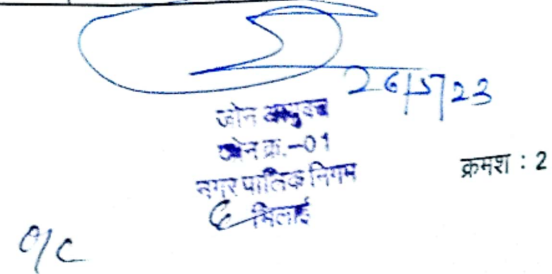 26/5/23
जोन आयुक्त
जोन क्र.-01
नगर पालिक निगम
भिलाई
क्रमश : 2